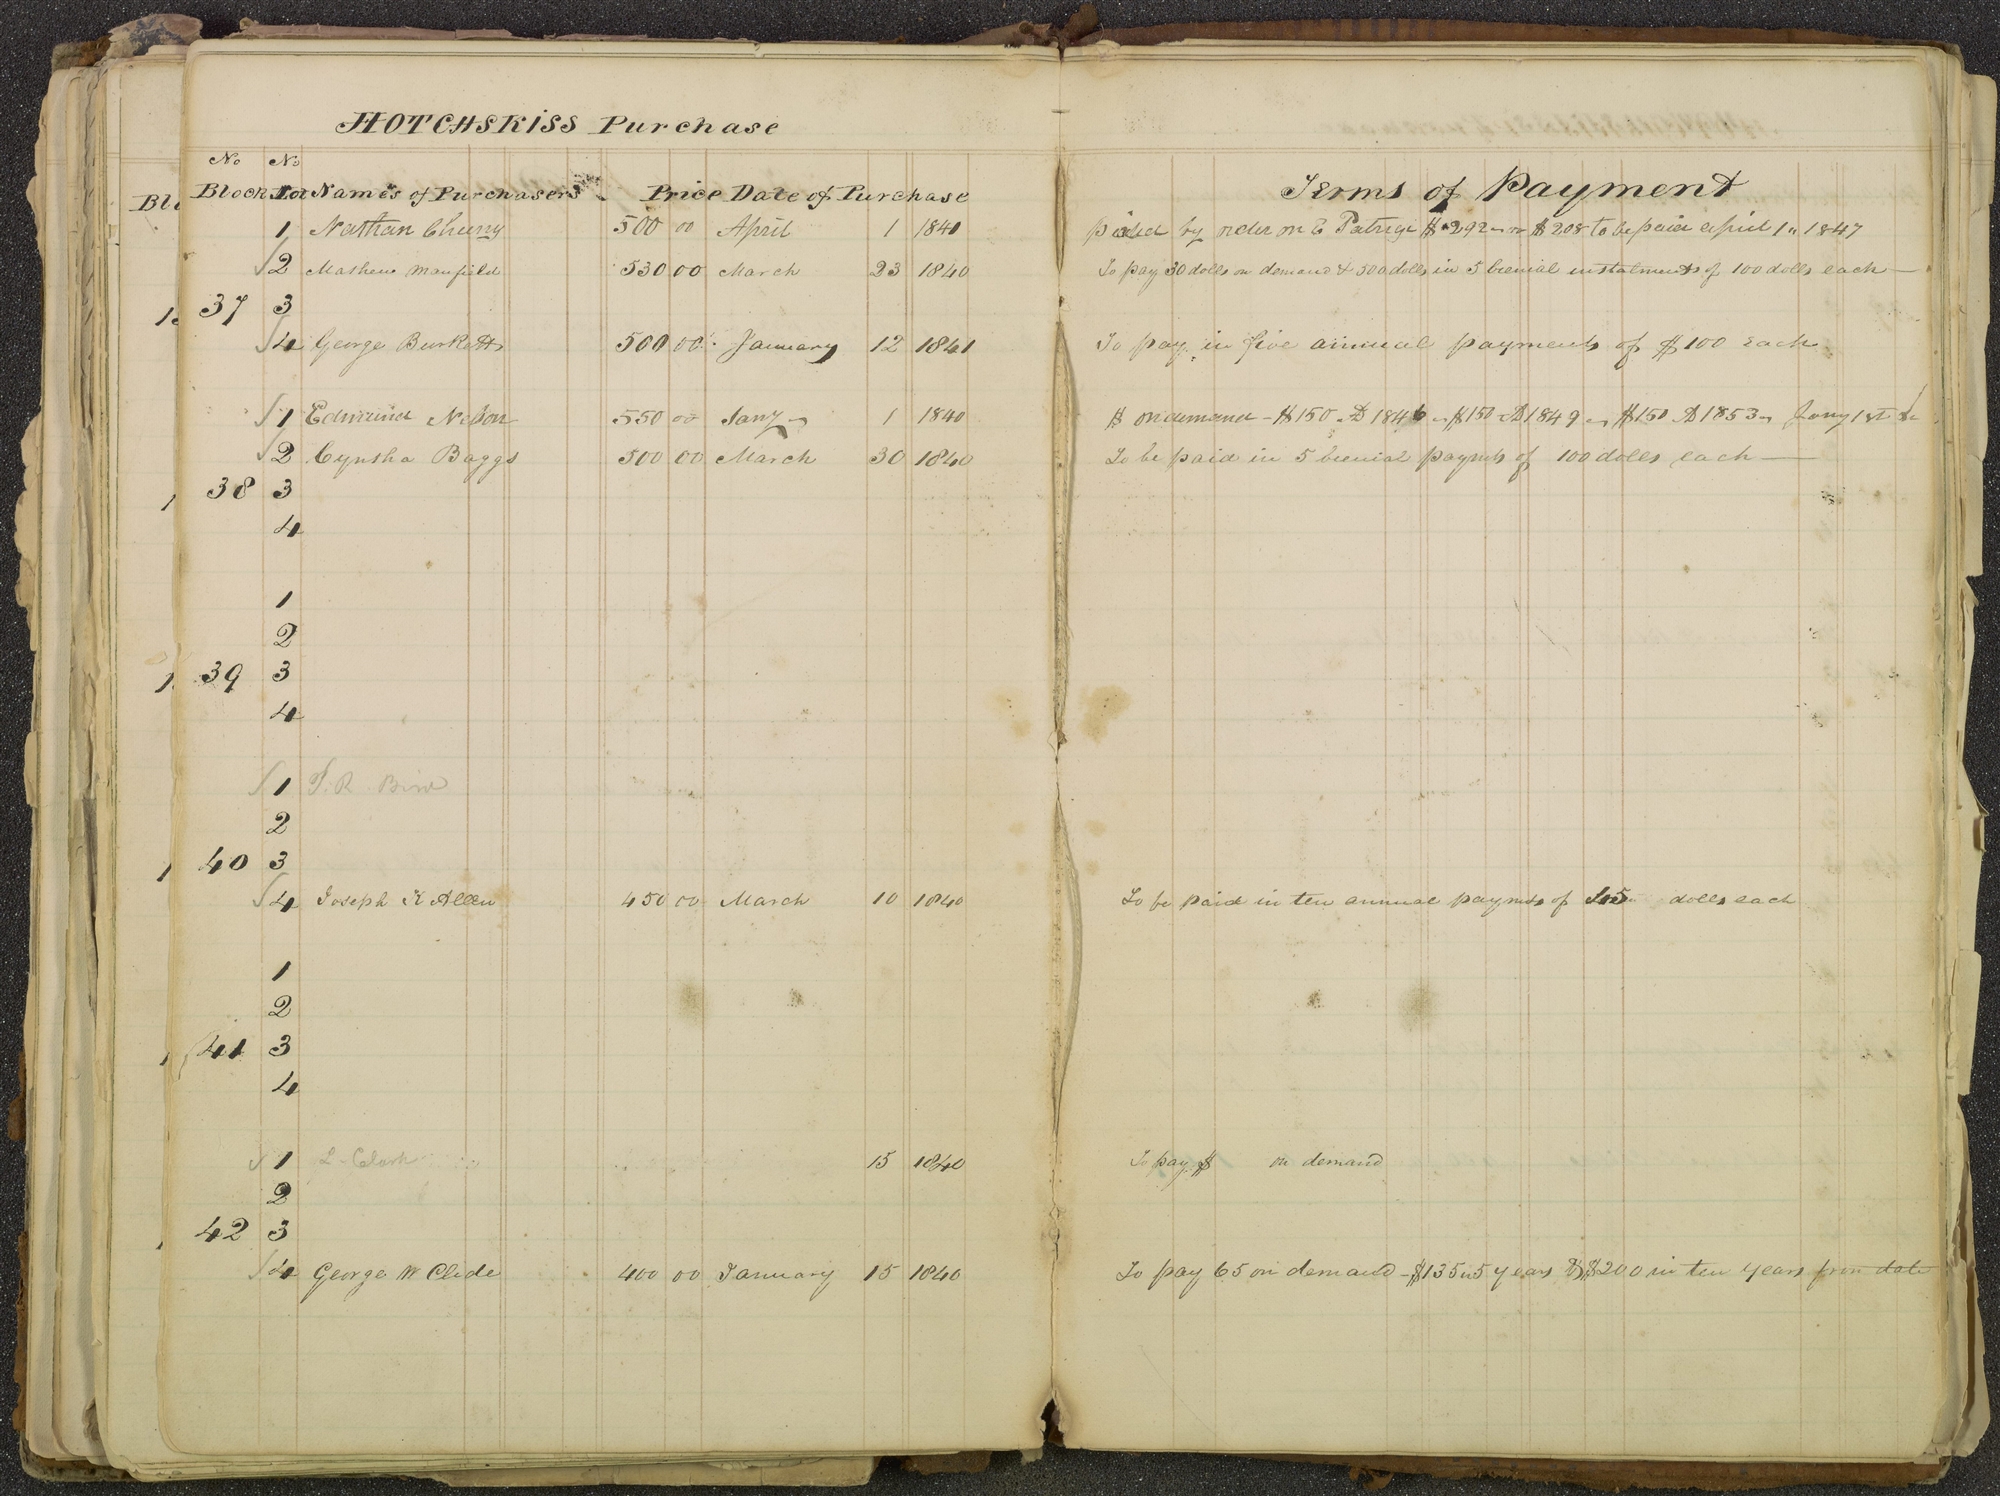 HOTCHSKISS Purchase
No No
Block Lot Names of Purchasers Price Date of Purchase Terms of Payment
1 Nathan Cheeny 500 00 April 1 1840 paied by order on E Patrige $292 $208 to be paid april 1 1847
2 Mathew Manfield 530 00 March 23 1840 To pay 30 dolls on demand & 500 dolls in 5 bienial instalments of 100 dolls each
37 3
4 George Burketts 500 00 January 12 1841 To pay in five annual payments of $100 each
1 Edmund Nelson 550 00 Jany 1 1840 $ on demand - $150 1846 $150 1849 $150 1853 Jany 1st
2 Cyntha Baggs 500 00 March 30 1840 To be paid in 5 bienial paymts of 100 dolls each
38 3
4
1
2
39 3
4
1 J. R Bird
2
40 3
4 Joseph Allen 450 00 March 10 1840 To be paid in ten annual paymts of dolls each
1
2
41 3
4
1 L. Clark 15 1840 To pay $ on demand
2
42 3
4 George W Clide 400 00 January 15 1840 To pay 65 on demand - $135 in 5 years & $200 in ten years from date
Bl